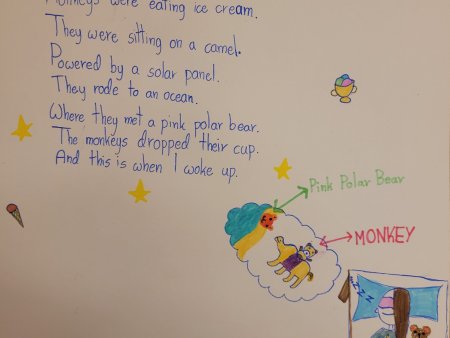 Monkeys were eating ice cream.
They were sitting on a camel.
Powered by a solar panel.
They rode to an ocean.
Where they met a pink polar bear.
The monkeys dropped their cup.
And this is when I woke up.
Pink Polar Bear
MONKEY
zzzz